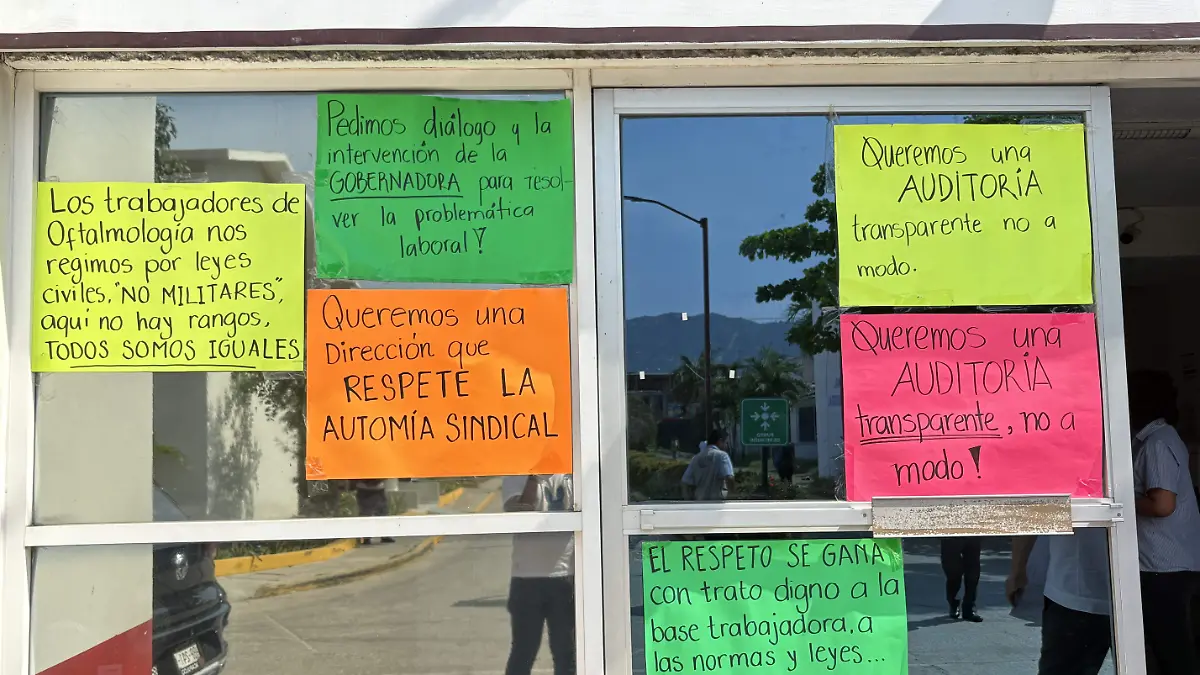 Los trabajadores de
Oftalmología nos
regimos por leyes
civiles, "NO MILITARES",
aquí no hay rangos,
TODOS SOMOS IGUALES
Pedimos diálogo y la
intervención de la
GOBERNADORA para resol-
ver la problemática
laboral!
Queremos una
Dirección que
RESPETE LA
AUTOMÍA SINDICAL
Queremos una
AUDITORÍA
transparente no a
modo.
Queremos una
AUDITORÍA
transparente, no a
modo!
EL RESPETO SE GANA
con trato digno a la
base trabajadora, a
las normas y leyes...